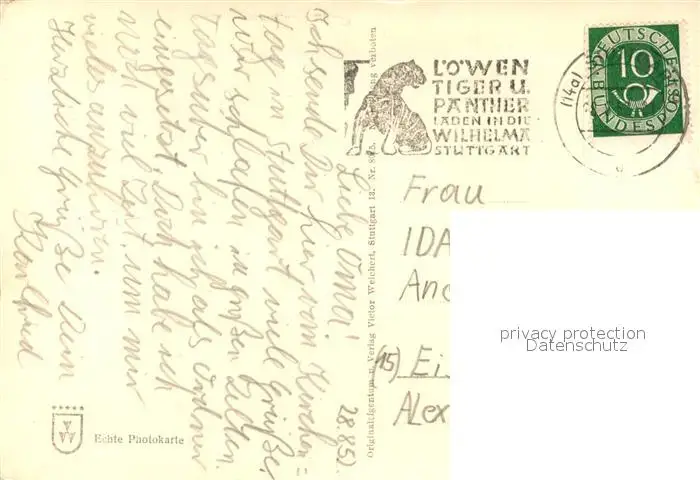 28.8.52.
Liebe Oma!
Ich sende Dir hier vom Kirchen=
tag in Stuttgart viele Grüße.
Wir schlafen in großen Zelten.
Tagsüber bin ich als Ordner
eingesetzt. Doch habe ich
noch viel Zeit, um mir
vieles anzuhören.
Herzliche Grüße Dein
Karlfried
Echte Photokarte
Originaleigentum u. Verlag Victor Weichert, Stuttgart 13. Nr. 895. verboten
LÖWEN
TIGER U.
PANTHER
LADEN IN DIE
WILHELMA
STUTTGART
(14a)
DEUTSCHE
BUNDESPOST
10
Frau
IDA
(15) Ei
Alex
privacy protection
Datenschutz